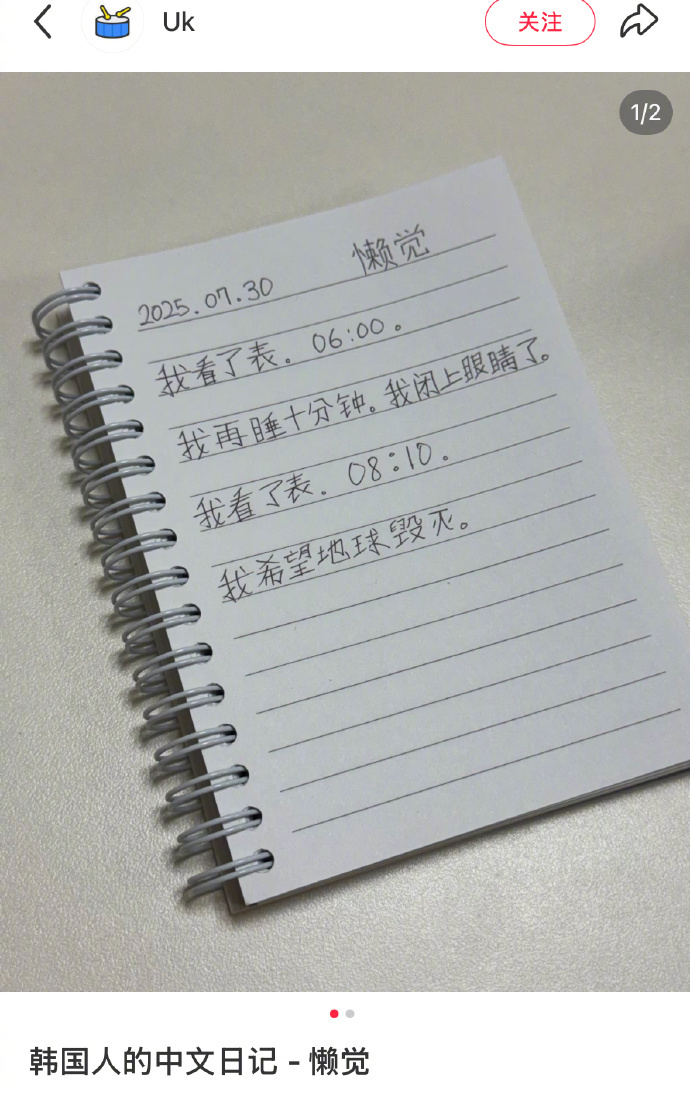 Uk
关注
1/2
2025.07.30 懒觉
我看了表。06:00。
我再睡十分钟。我闭上眼睛了。
我看了表. 08:10.
我希望地球毁灭。
韩国人的中文日记 - 懒觉